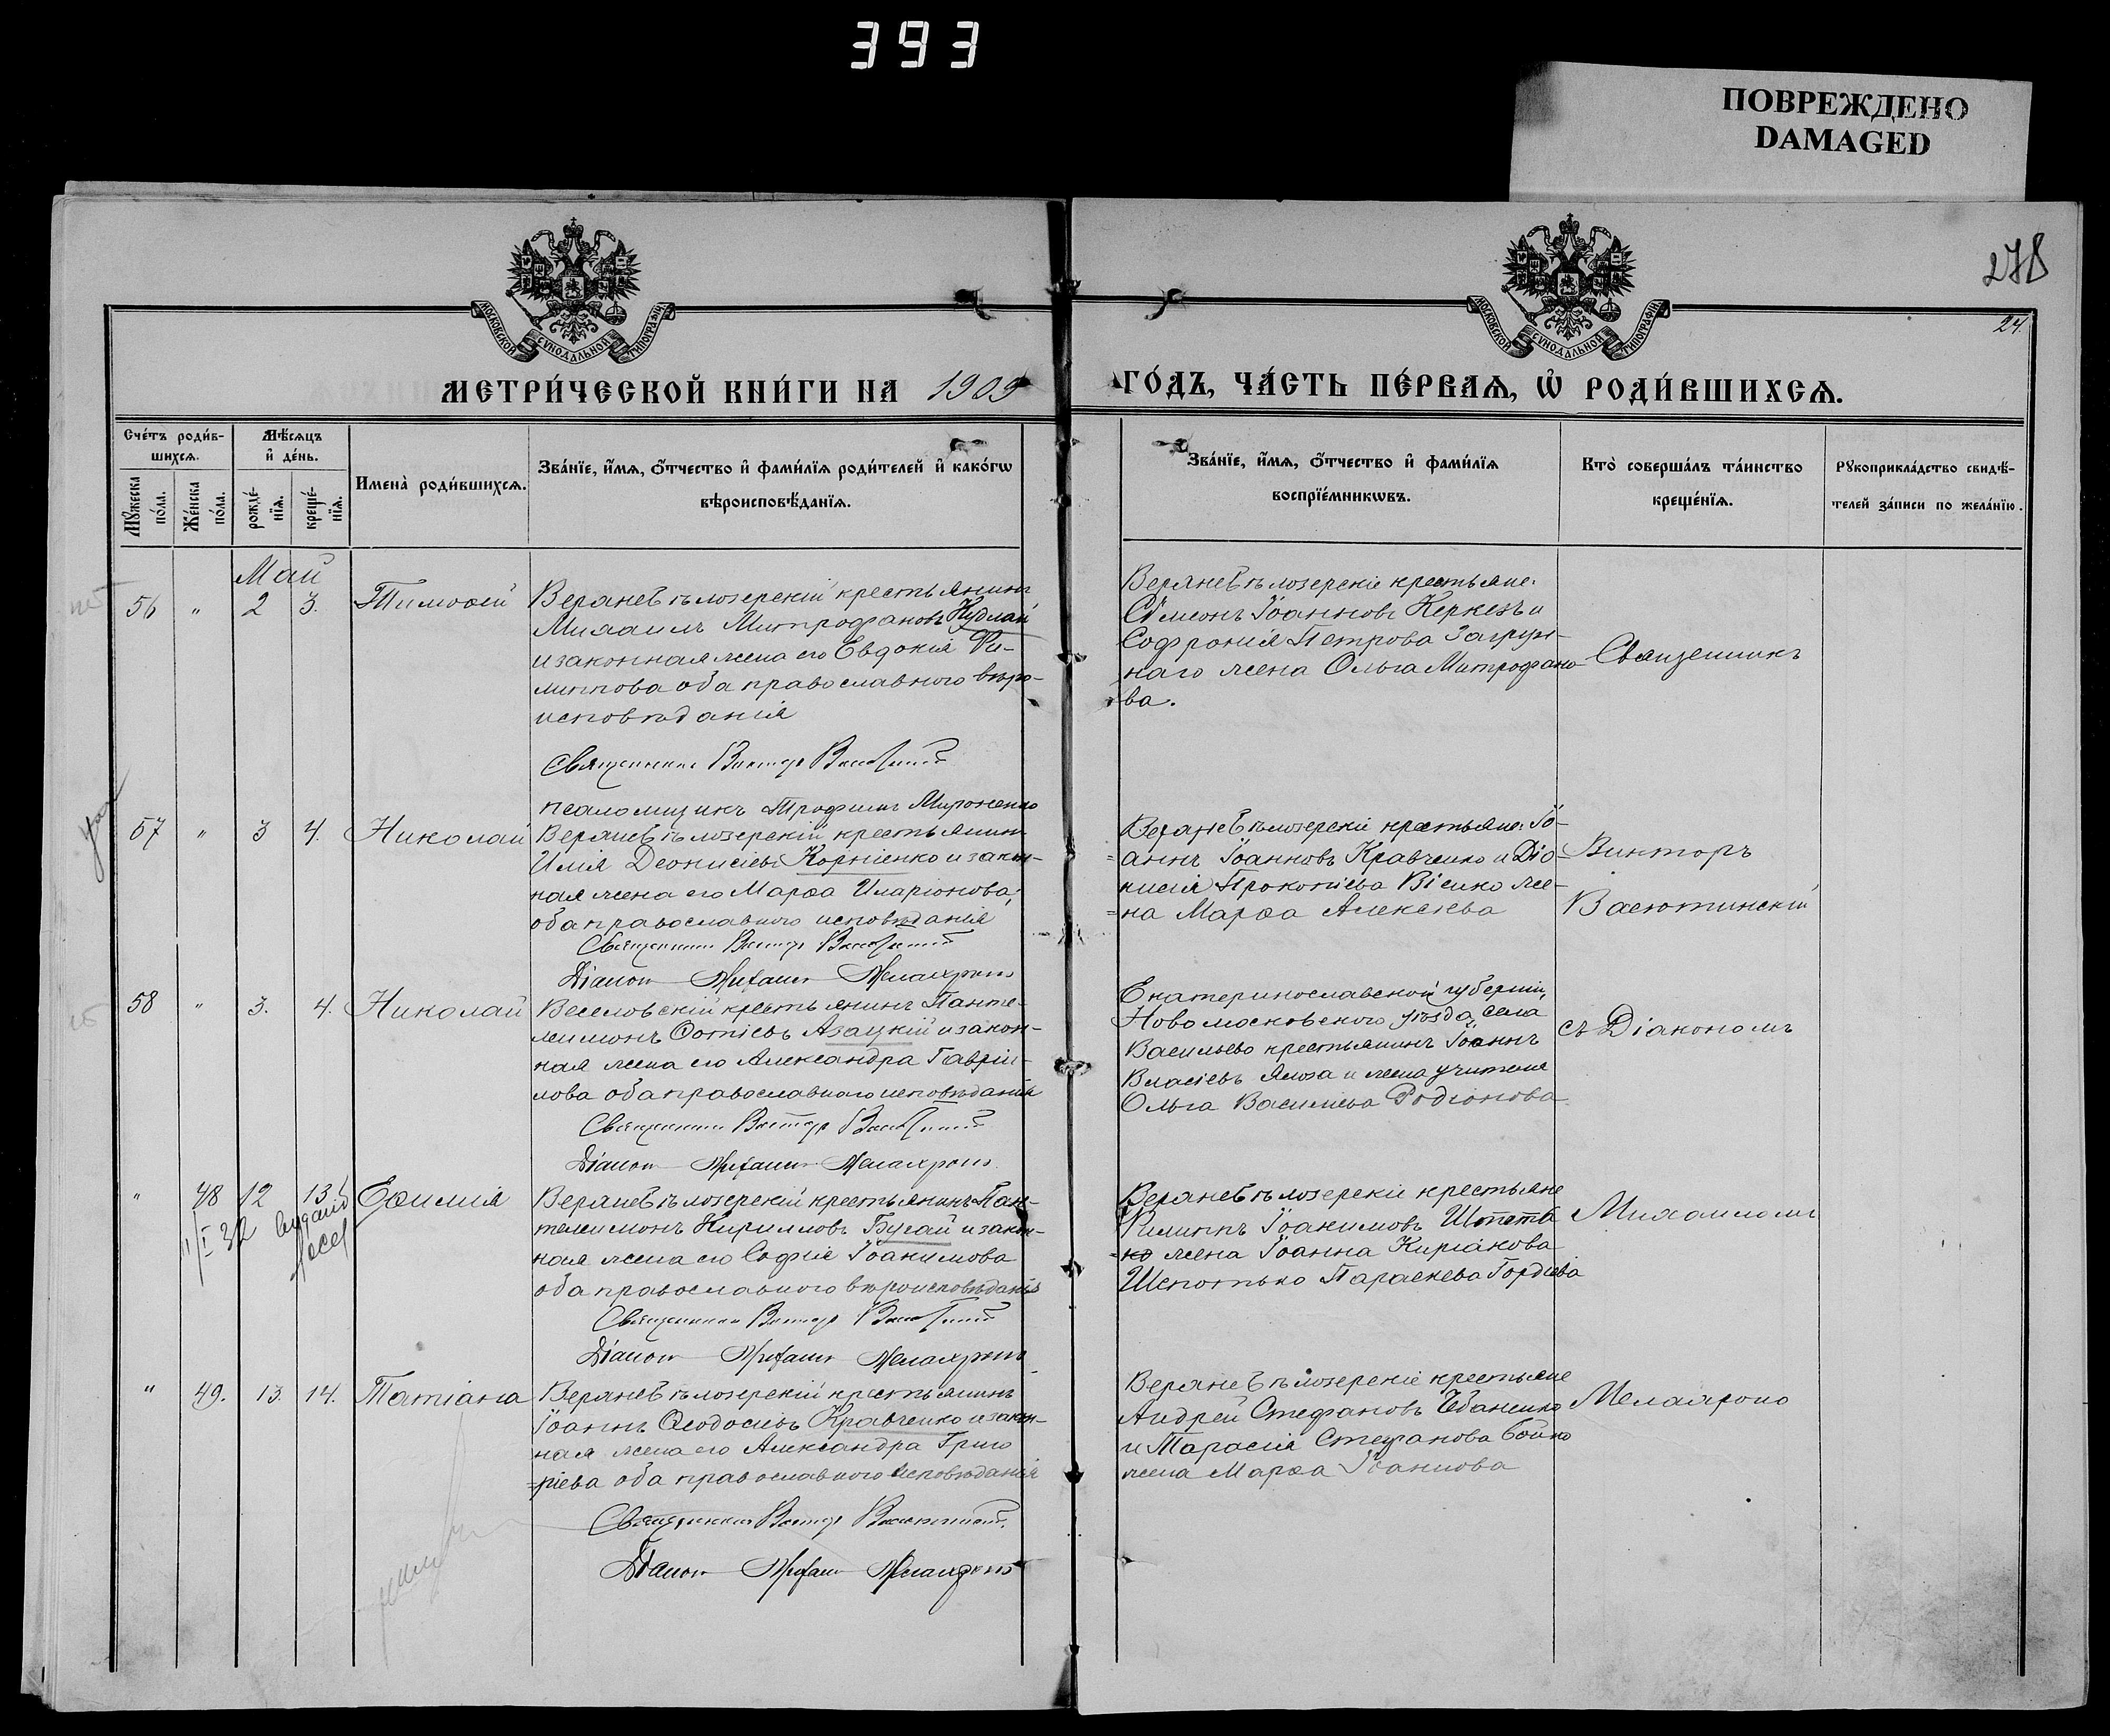 393
ПОВРЕЖДЕНО
DAMAGED
278
24
МОСКОВСКОЙ СѴНОДАЛЬНОЙ ТИПОГРАФІИ
МОСКОВСКОЙ СѴНОДАЛЬНОЙ ТИПОГРАФІИ
МЕТРИ́ЧЕСКОЙ КНИ́ГИ НА 1909
ГО́ДЪ, ЧА́СТЬ ПЕ́РВАѦ, Ѡ҆ РОДИ́ВШИХСѦ.
Сче́тъ роди́в-
шихсѧ.
Мꙋ́жеска по́ла.
Же́нска по́ла.
Мѣ́сѧцъ
и҆ де́нь.
рожде́-
нїѧ.
креще́-
нїѧ.
Имена̀ роди́вшихсѧ.
Зва́нїе, и҆́мѧ, ѻ҆́тчество и҆ фами́лїѧ роди́телей и҆ како́гѡ
вѣроисповѣ́данїѧ.
Зва́нїе, и҆́мѧ, ѻ҆́тчество и҆ фами́лїѧ
воспрїе́мникѡвъ.
Кто̀ соверша́лъ та́инство
креще́нїѧ.
Рꙋкоприкла́дство свидѣ́-
телей за́писи по жела́нїю.
Май
56 " 2 3. Тимоѳей
Верхнебѣлозерскій крестьянинъ
Михаилъ Митрофановъ Кудлай
и законная жена его Евдокія Фи-
липпова оба православного вѣро-
исповѣданія
Священникъ Викторъ Васютинскій
псаломщикъ Трофимъ Мироненко
Верхнебѣлозерскіе крестьяне:
Сѵмеонъ Іоанновъ Керкезъ и
Софронія Петрова Загруж-
наго жена Ольга Митрофано-
ва.
Священникъ
57 " 3 4. Николай
Верхнебѣлозерскій крестьянинъ
Илія Діонисіевъ Корніенко и закон-
ная жена его Марѳа Иларіонова,
оба православного исповѣданія
Священникъ Викторъ Васютинскій
Діаконъ Михаилъ Мелахроно
Верхнебѣлозерскіе крестьяне: Іо-
аннъ Іоанновъ Кравченко и Діо-
нисія Прокопіева Віенко же-
на Марѳа Алексіева
Викторъ
Васютинскій
58 " 3. 4. Николай
Веселовскій крестьянинъ Панте-
леимонъ Ѳотіевъ Азацкій и закон-
ная жена его Александра Гавріи-
лова оба православного исповѣданія
Священникъ Викторъ Васютинскій
Діаконъ Михаилъ Мелахроно
Екатеринославской губерніи,
Новомосковского уѣзда, села
Васильево крестьянинъ Іоаннъ
Власіевъ Ялоза и жена учителя
Ольга Василіева Родіонова
съ Діакономъ
" 48 12 13. Евѳимія
Верхнебѣлозерскій крестьянинъ Пан-
телеимонъ Кирилловъ Бугай и закон-
ная жена его Софія Іоакимова
оба православного вѣроисповѣданія
Священникъ Викторъ Васютинскій
Діаконъ Михаилъ Мелахроно
Верхнебѣлозерскіе крестьяне
Филиппъ Іоакимовъ
жена Іоанна Киріакова
Шепотько Параскева Гордіева
Михаиломъ
" 49. 13 14. Татіана
Верхнебѣлозерскій крестьянинъ
Іоаннъ Ѳеодосіевъ Кравченко и закон-
ная жена его Александра Григо
=ріева оба православного исповѣданія
Священникъ Викторъ Васютинскій
Діаконъ Михаилъ Мелахроно
Верхнебѣлозерскіе крестьяне
Андрей Стефановъ Чебаненко
и Тарасія Стефанова Бойко
жена Марѳа Іоаннова
Мелахроно